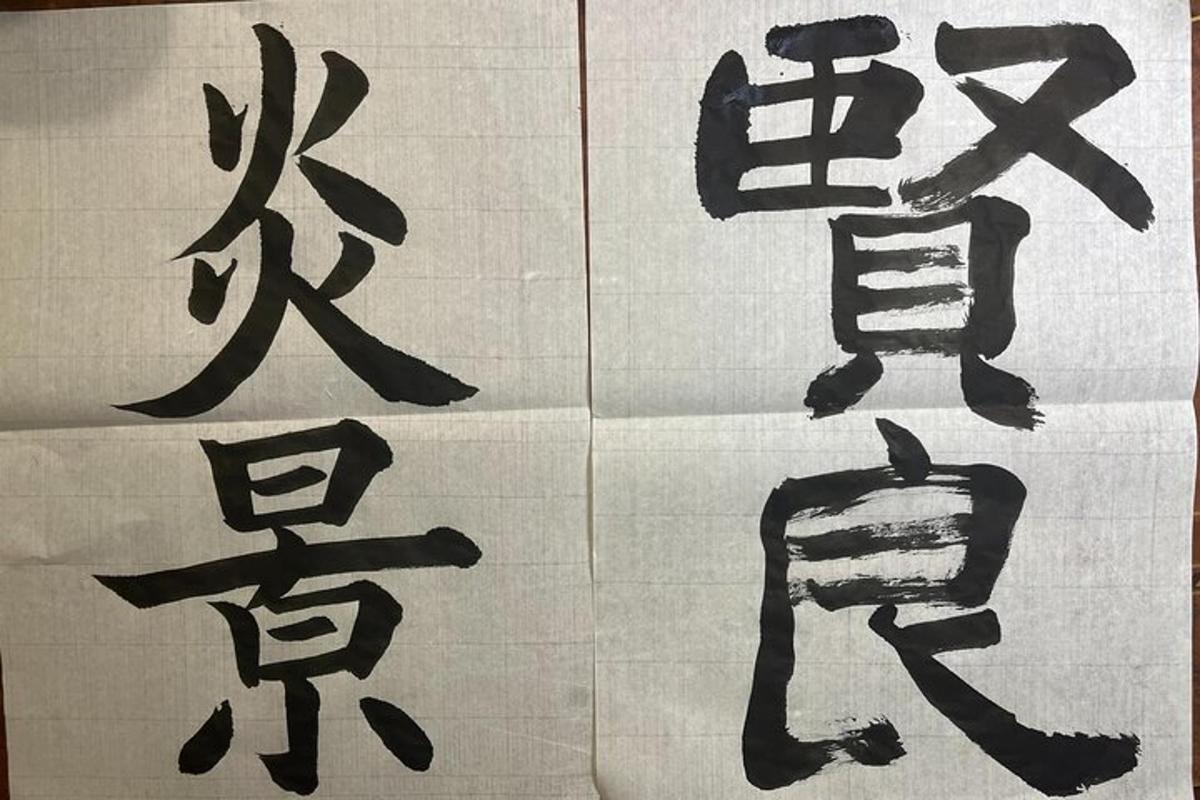 賢良
炎景